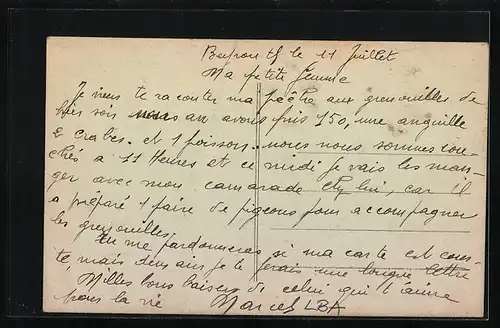 Beyrouth le 11 Juillet
Ma petite femme
Je viens te raconter ma pêche aux grenouilles de
hier soir nous en avons pris 150, une anguille
2 crabes et 1 poisson. nous nous sommes cou-
chés à 11 Heures et ce midi je vais les man-
ger avec mon camarade chez lui, car il
a préparé 1 paire de pigeons pour accompagner
les grenouilles.
Tu me pardonneras si ma carte est cour-
te, mais demain je te ferais une longue lettre
Milles bons baisers de celui qui t'aime
pour la vie Marcel